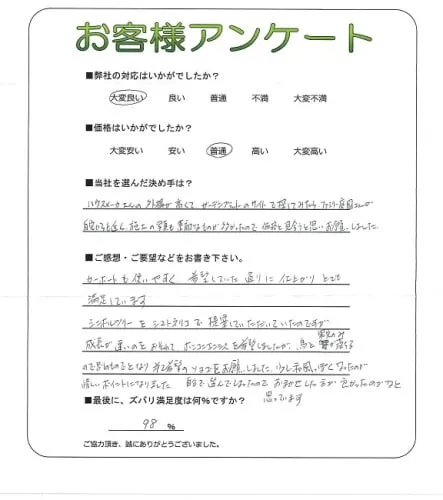 お客様アンケート
■弊社の対応はいかがでしたか？
大変良い 良い 普通 不満 大変不満
■価格はいかがでしたか？
大変安い 安い 普通 高い 大変高い
■当社を選んだ決め手は？
ハウスメーカーさんの外構が高くて、ガーデンプラットのサイトで探してみたら、
自宅からも近く、施工の写真も素敵なものが多かったので価格と見合うと思いお願いしました
■ご感想・ご要望などをお書き下さい。
カーポートも使いやすく 希望していた通りに仕上がり とても
満足しています
シンボルツリーを シマトネリコで 提案していただいていたのですが
成長が速いのをおそれて ホンコンエンシスを希望しましたが、鳥と
ので やめることとなり
お願いしました。少し和風っぽくなったが
良いポイントになりました 自分で選んでしまったので おまかせした方が良かったのかなと
思っています
■最後に、ズバリ満足度は何％ですか？
98 %
ご協力頂き、誠にありがとうございました。